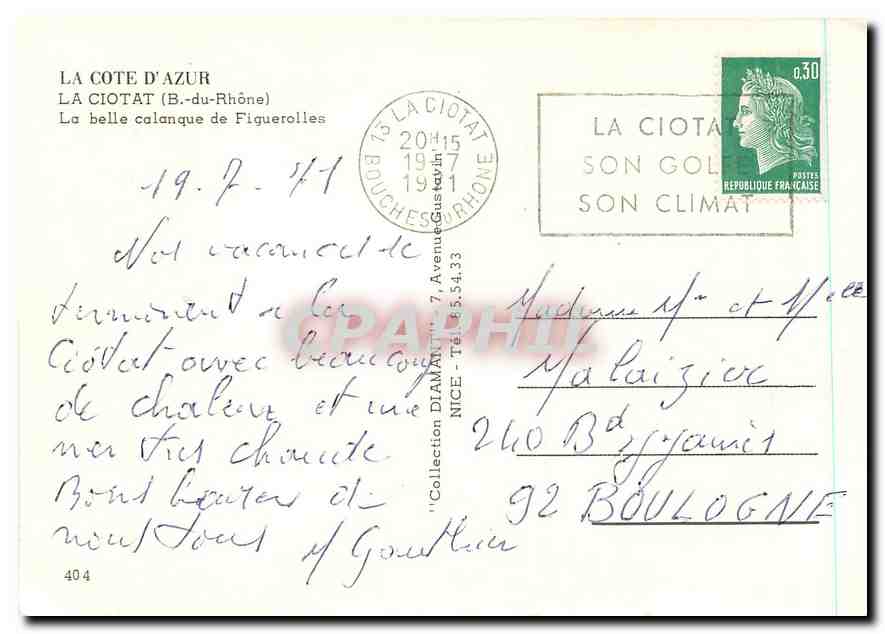 LA COTE D'AZUR
LA CIOTAT (B.-du-Rhône)
La belle calanque de Figuerolles
13 LA CIOTAT
20H15
19-7
1971
BOUCHES DU RHONE
LA CIOTAT
SON GOLFE
SON CLIMAT
0,30
POSTES
REPUBLIQUE FRANÇAISE
19.7.71
Nos vacances se
terminent a la
Ciotat avec beaucoup
de chaleur et une
mer très chaude
Bons baisers de
nous tous
M Gauthier
404
"Collection DIAMANT" - 7, Avenue Gustavin
NICE - Tél. 85.54.33
Madame Mr et Melle
240 Bd
92 BOULOGNE
CPAPHIL